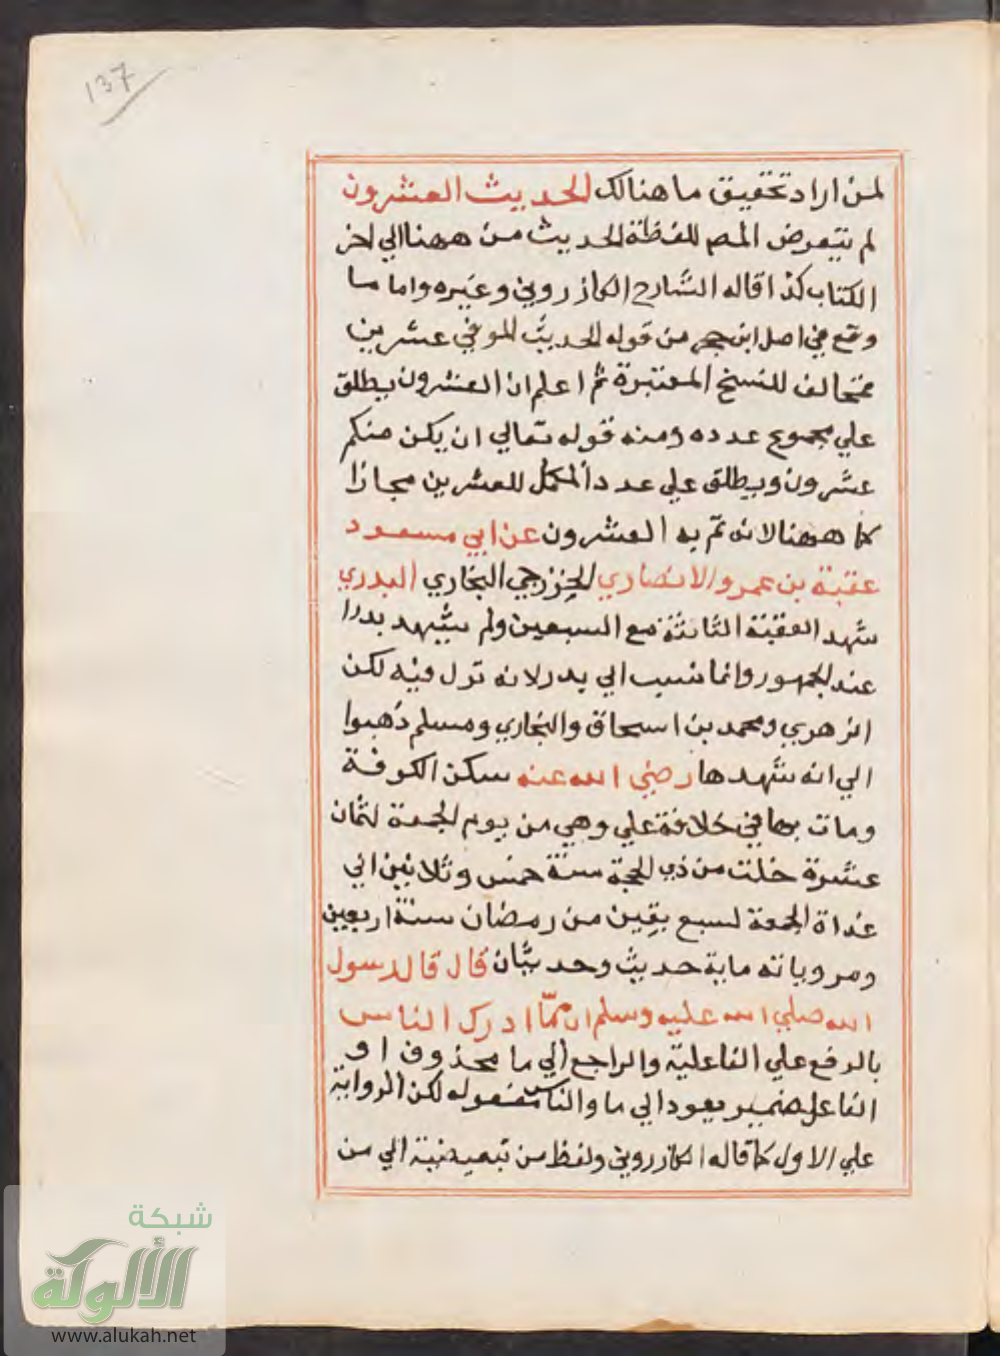 137
لمن اراد تحقيق ما هنالك الحديث العشرون
لم يتعرض المص للفظة الحديث من ههنا الي اخر
الكتاب كذا قاله الشارح الكازروني وغيره واما ما
وقع في اصل ابن حجر من قوله الحديث الموفي عشرين
فمخالف للنسخ المعتبرة ثم اعلم ان العشرون يطلق
علي مجموع عدده ومنه قوله تعالي ان يكن منكم
عشرون ويطلق علي عدد المكمل للعشرين مجازا
كما ههنا لانه تم به العشرون عن ابي مسعود
عقبة بن عمرو الانصاري الخزرجي البخاري البدري
شهد العقبة الثانية مع السبعين ولم يشهد بدرا
عند الجمهور وانما نسب الي بدر لانه نزل فيه لكن
الزهري ومحمد بن اسحاق والبخاري ومسلم ذهبوا
الي انه شهدها رضي الله عنه سكن الكوفة
ومات بها في خلافة علي وهي من يوم الجمعة لثمان
عشرة خلت من ذي الحجة سنة خمس وثلاثين الي
غداة الجمعة لسبع بقين من رمضان سنة اربعين
ومروياته ماية حديث وحديثان قال قال رسول
الله صلي الله عليه وسلم ان مما ادرك الناس
بالرفع علي الفاعلية والراجع الي ما محذوف او
الفاعل ضمير يعود الي ما والناس مفعوله لكن الرواية
علي الاول كما قاله الكازروني ولفظ من تبعيضية الي من
شبكة
الألوكة
www.alukah.net